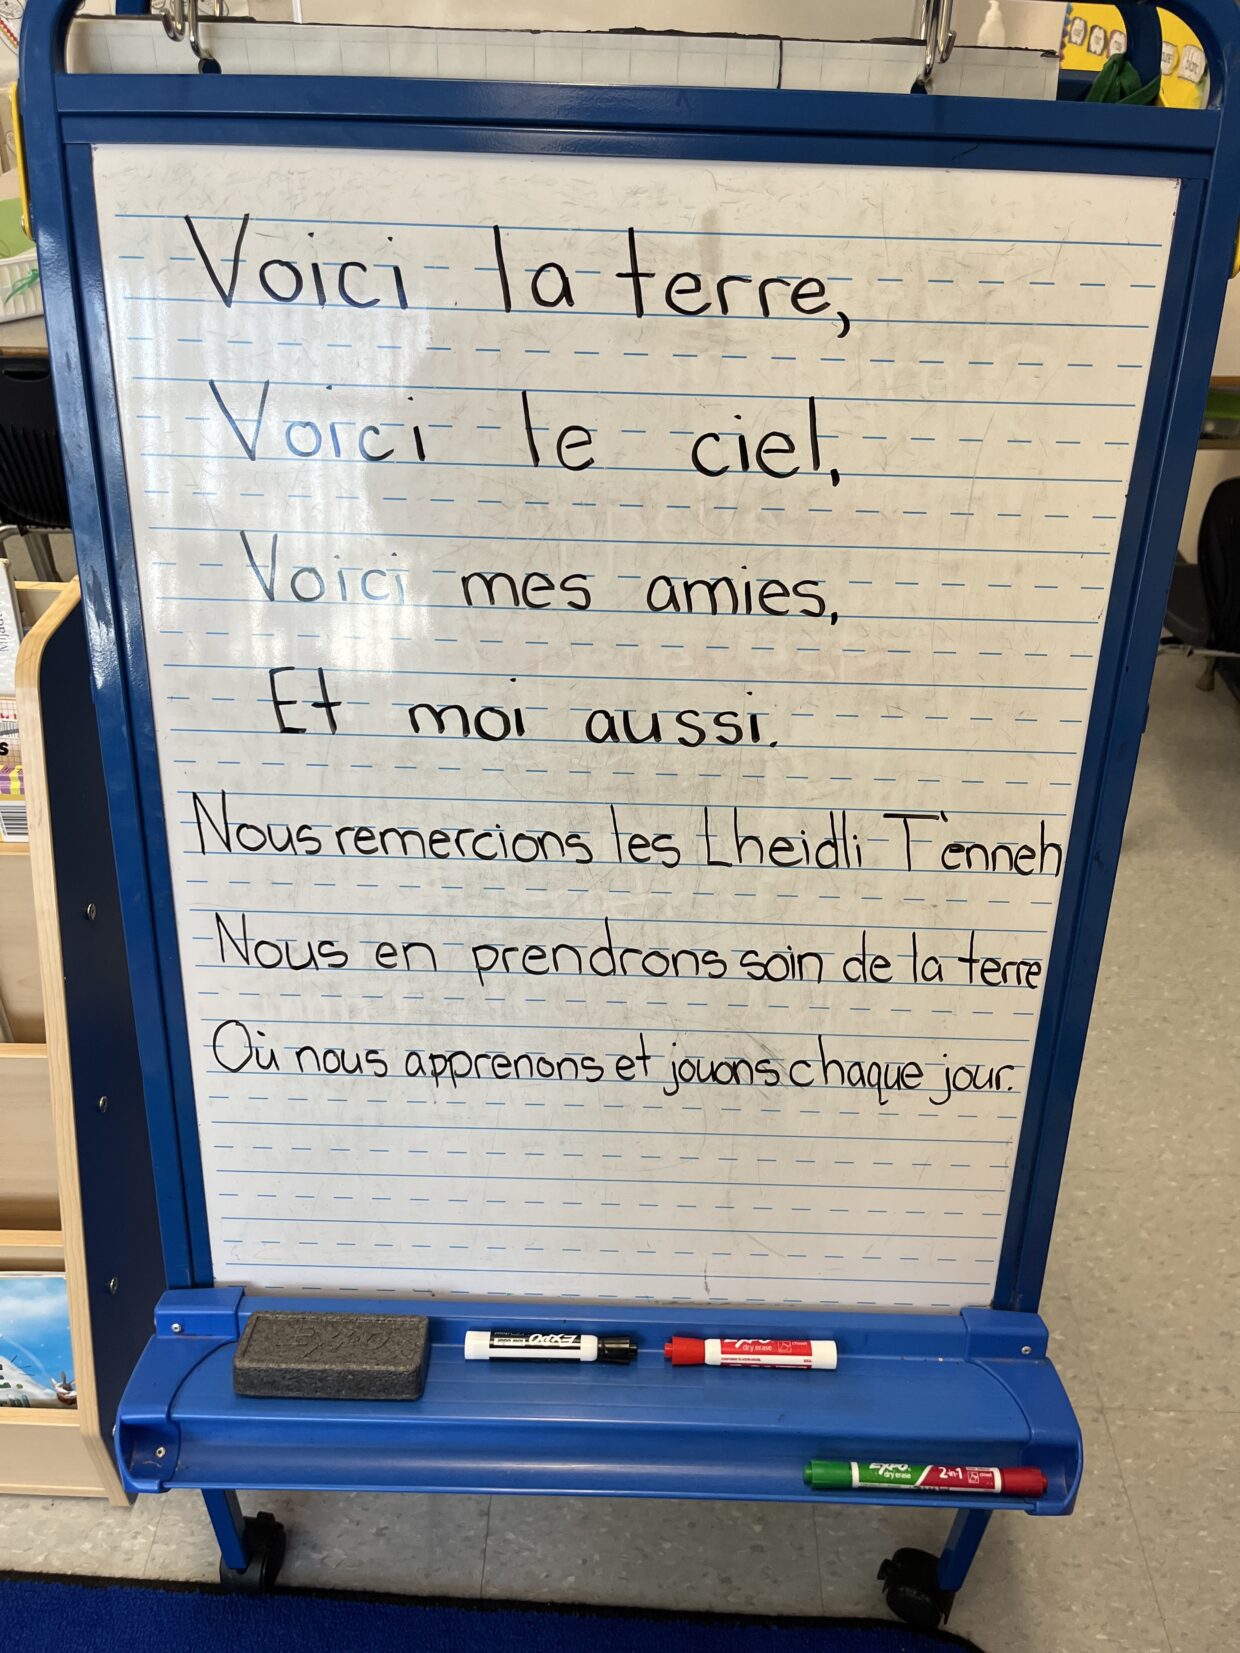 Voici la terre,
Voici le ciel,
Voici mes amies,
Et moi aussi.
Nous remercions les Lheidli T'enneh
Nous en prendrons soin de la terre
Où nous apprenons et jouons chaque jour.
EXPO
EXPO
EXPO
dry erase
EXPO
dry erase
2-in-1